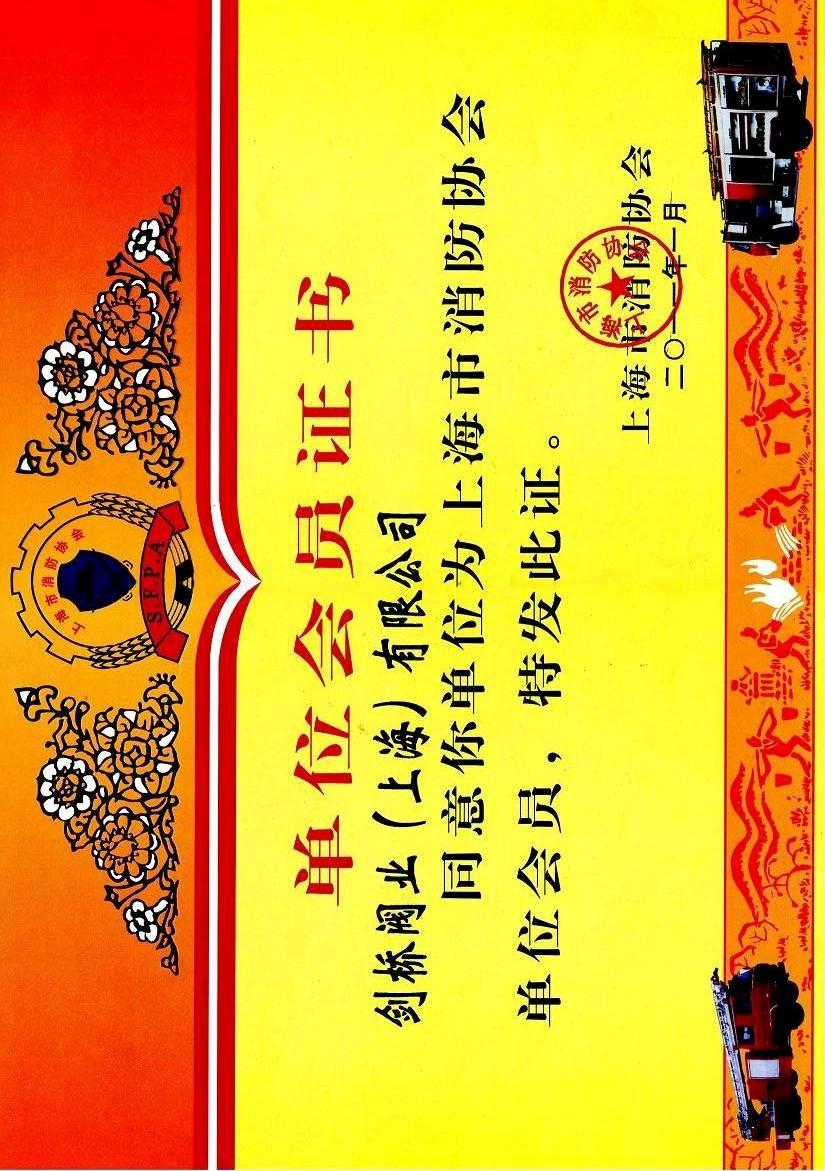 上海市消防协会
SFPA
单位会员证书
剑桥阀业(上海)有限公司
同意你单位为上海市消防协会
单位会员,特发此证。
上海市消防协会
二〇一一年一月